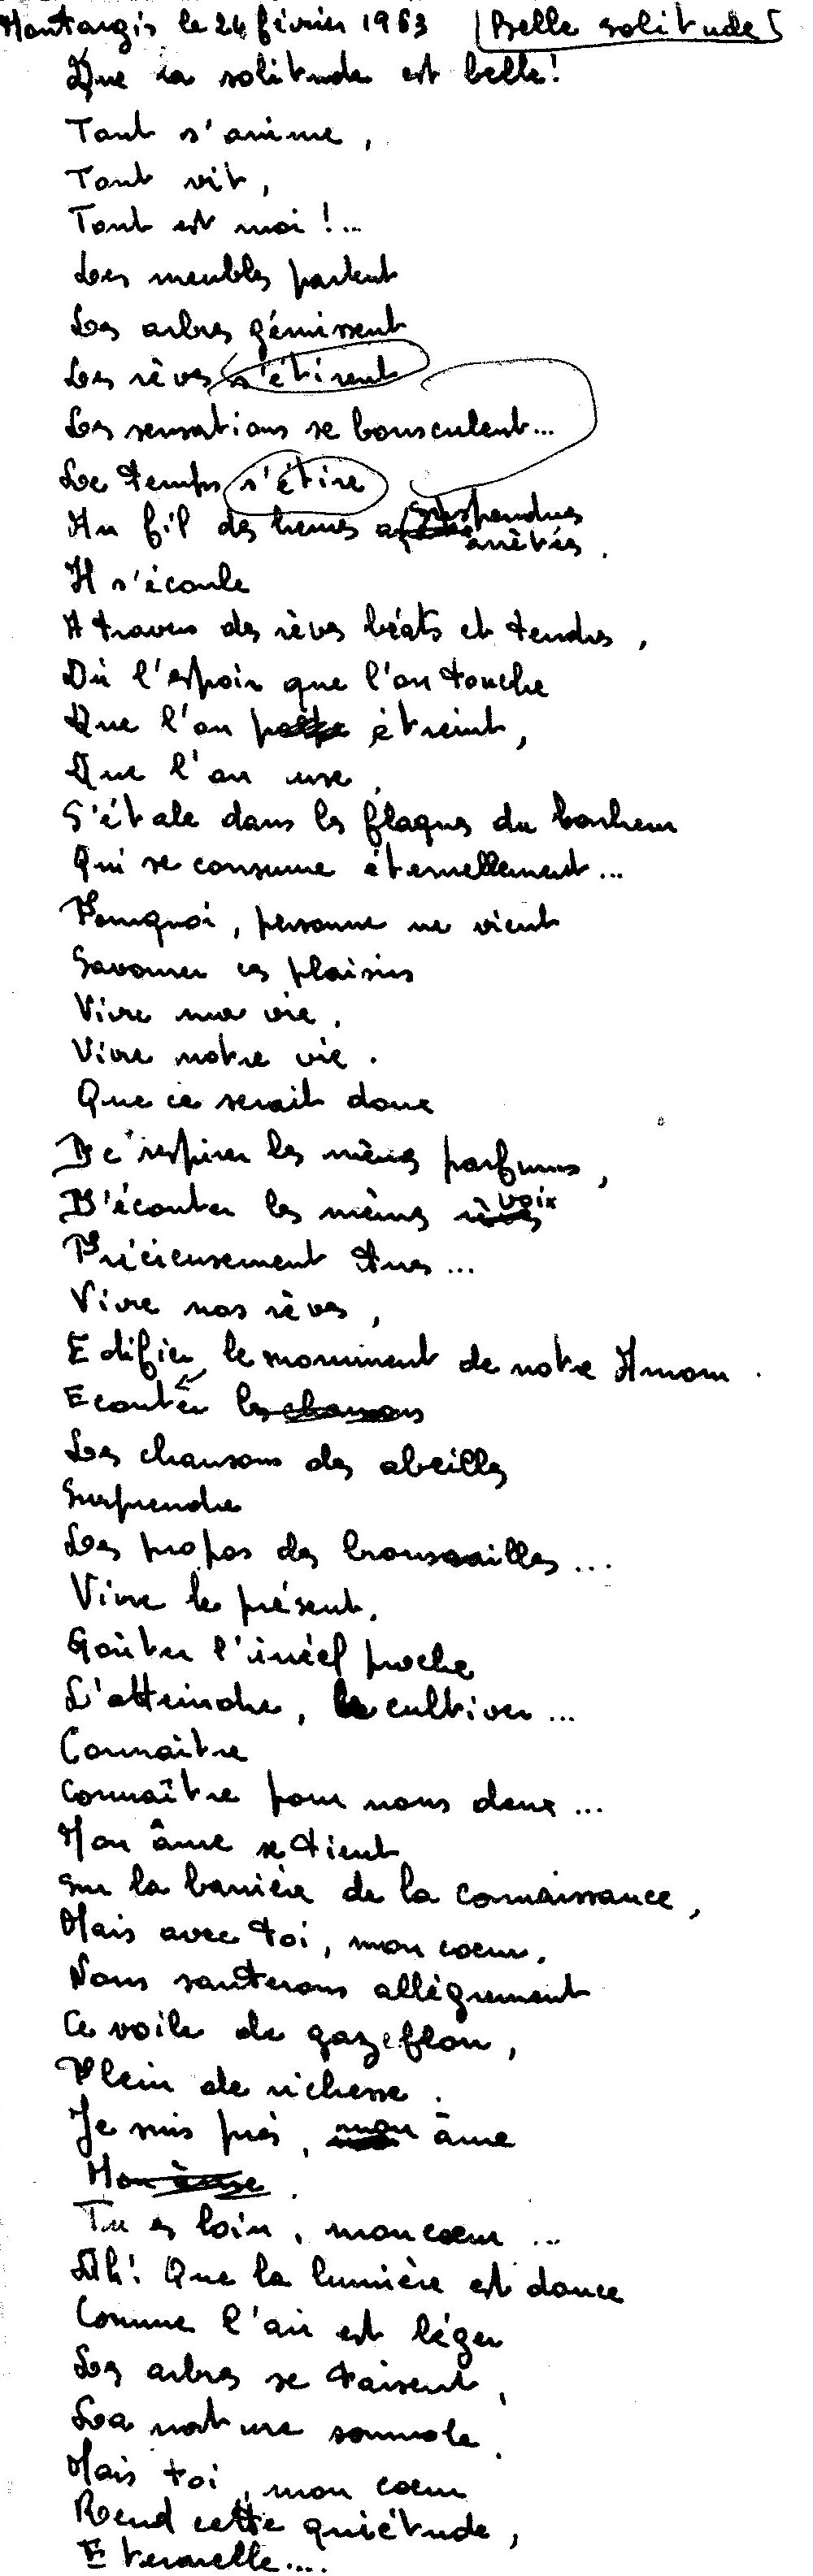 Montargis le 24 février 1963 Belle solitude
Que la solitude est belle!
Tout s'anime,
Tout vit,
Tout est moi!...
Les meubles parlent
Les arbres gémissent
Les rêves s'étirent
Les sensations se bousculent...
Le temps s'étire
Au fil des heures suspendues
arrêtés.
Il s'écoule
A travers des rêves béats et tendres,
Où l'espoir que l'on touche
Que l'on étreint,
Que l'on use,
S'étale dans les flaques du bonheur
Qui se consume éternellement...
Pourquoi, personne ne vient
Savourer ces plaisirs
Vivre ma vie.
Vivre notre vie.
Que ce serait doux
De respirer les mêmes parfums,
D'écouter les mêmes rêves voix
Précieusement tues...
Vivre nos rêves,
Edifier le monument de notre Amour.
Ecouter les chansons
Les chansons des abeilles
Surprendre
Les propos des broussailles...
Vivre le présent.
Goûter l'irréel proche
L'atteindre, le cultiver...
Connaître
connaître pour nous deux...
Mon âme se tient
Sur la barrière de la connaissance,
Mais avec toi, mon coeur.
Nous sauterons allègrement
Ce voile de gaze flou,
Plein de richesse.
Je suis près, mon âme
Mon âme.
Tu es loin, mon coeur...
Ah! Que la lumière est douce
Comme l'air est léger
Les arbres se taisent,
La nature somnole.
Mais toi, mon coeur
Rend cette quiétude,
Eternelle....